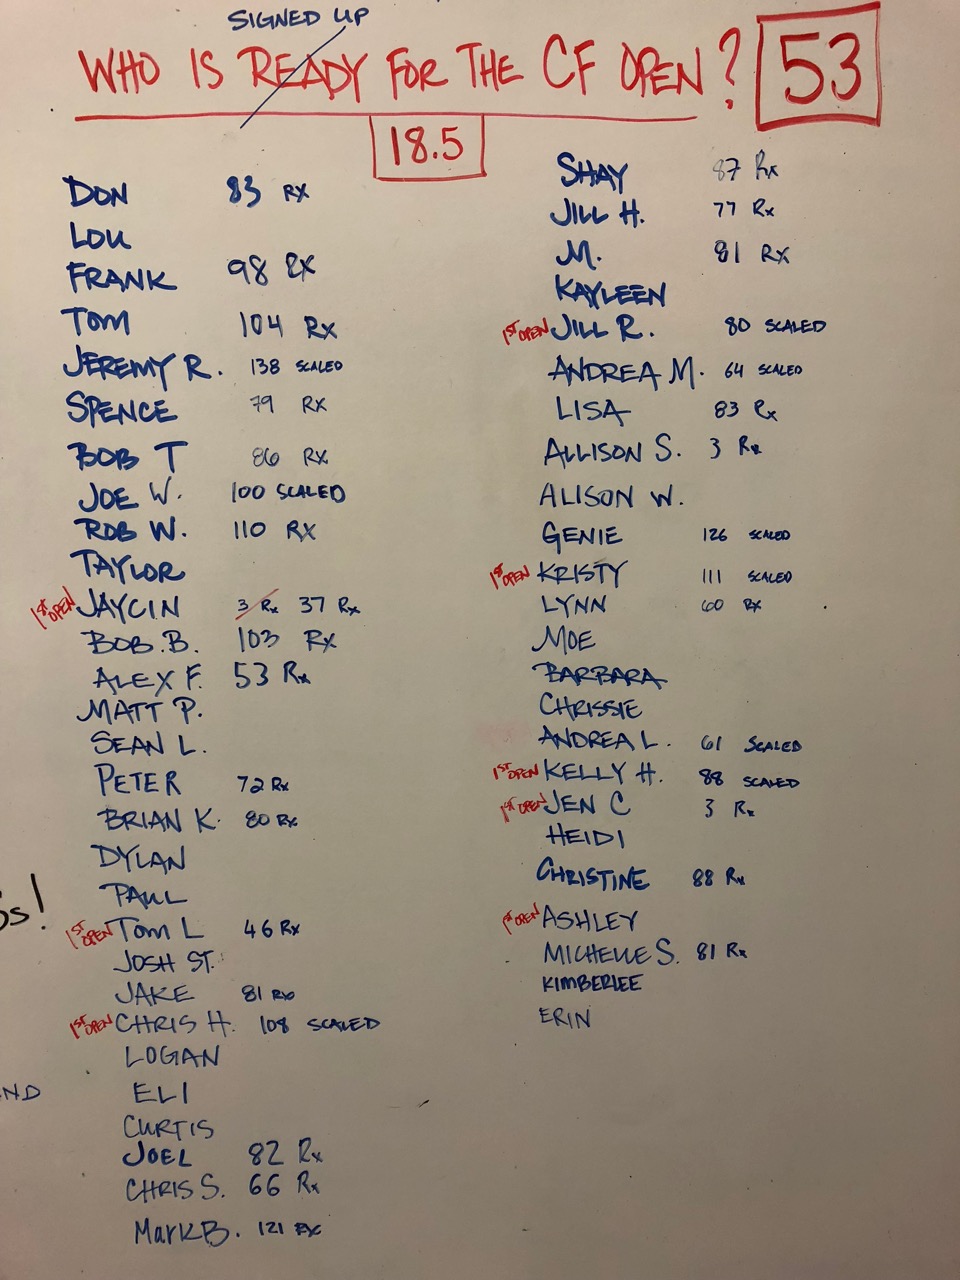 SIGNED UP
WHO IS READY FOR THE CF OPEN? 53
18.5
DON 83 RX
LOU
FRANK 98 RX
TOM 104 RX
JEREMY R. 138 SCALED
SPENCE 79 RX
BOB T 86 RX
JOE W. 100 SCALED
ROB W. 110 RX
TAYLOR
1ST OPEN JAYCIN 3 Rx 37 Rx
BOB.B. 103 RX
ALEX F. 53 Rx
MATT P.
SEAN L.
PETER 72 Rx
BRIAN K. 80 Rx
DYLAN
PAUL
1ST OPEN TOM L 46 Rx
JOSH ST.
JAKE 81 Rx
1ST OPEN CHRIS H. 108 SCALED
LOGAN
ELI
CURTIS
JOEL 82 Rx
CHRIS S. 66 Rx
MarkB. 121 RX
SHAY 87 Rx
JILL H. 77 Rx
M. 81 RX
KAYLEEN
1ST OPEN JILL R. 80 SCALED
ANDREA M. 64 SCALED
LISA 83 Rx
ALLISON S. 3 Rx
ALISON W.
GENIE 126 SCALED
1ST OPEN KRISTY 111 SCALED
LYNN 60 RX
MOE
BARBARA
CHRISSIE
ANDREA L. 61 SCALED
1ST OPEN KELLY H. 88 SCALED
1ST OPEN JEN C 3 Rx
HEIDI
CHRISTINE 88 Rx
1ST OPEN ASHLEY
MICHELLE S. 81 Rx
KIMBERLEE
ERIN